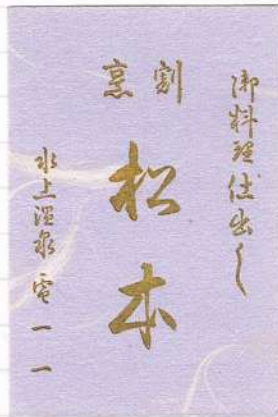 御料理仕出し
割烹
松本
水上温泉 電 一一